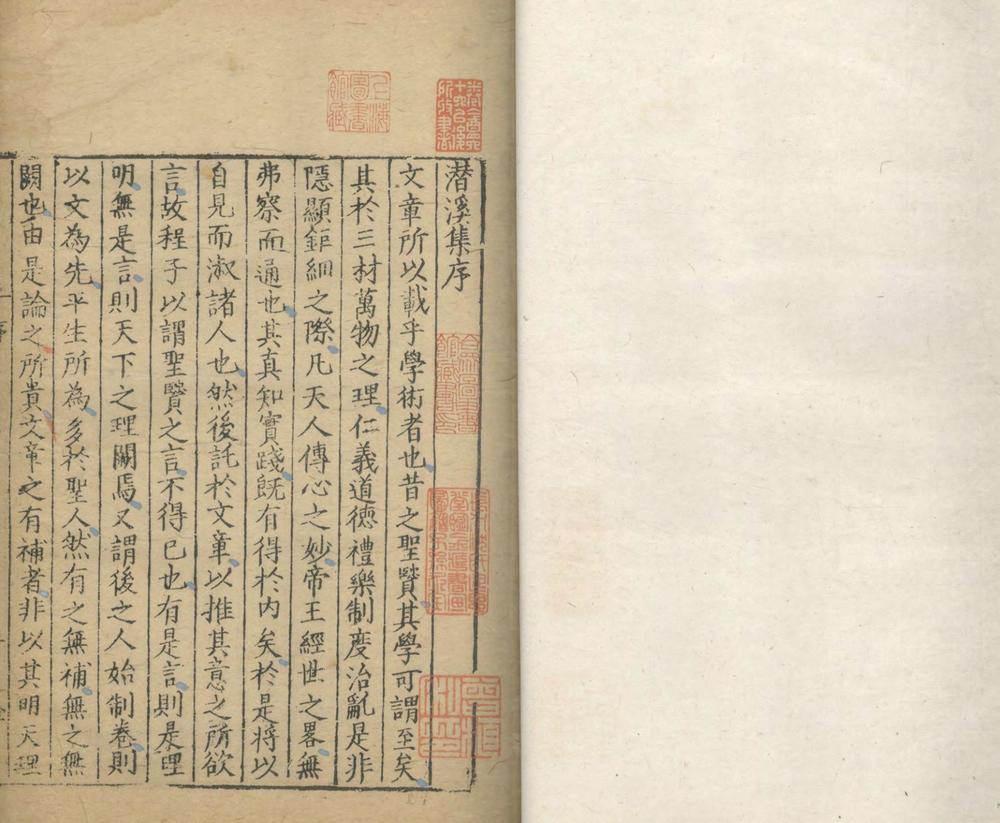 潜溪集序
文章所以載乎學術者也昔之聖賢其學可謂至矣
其於三材萬物之理仁義道德禮樂制度治亂是非
隱顯鉅細之際凡天人傳心之妙帝王經世之畧無
弗察而通也其真知實踐既有得於内矣於是將以
自見而淑諸人也然後託於文章以推其意之所欲
言故程子以謂聖賢之言不得已也有是言則是理
明無是言則天下之理闕焉又謂後之人始制卷則
以文為先平生所為多於聖人然有之無補無之無
闕也由是論之所貴文章之有補者非以其明天理
上海圖書館藏